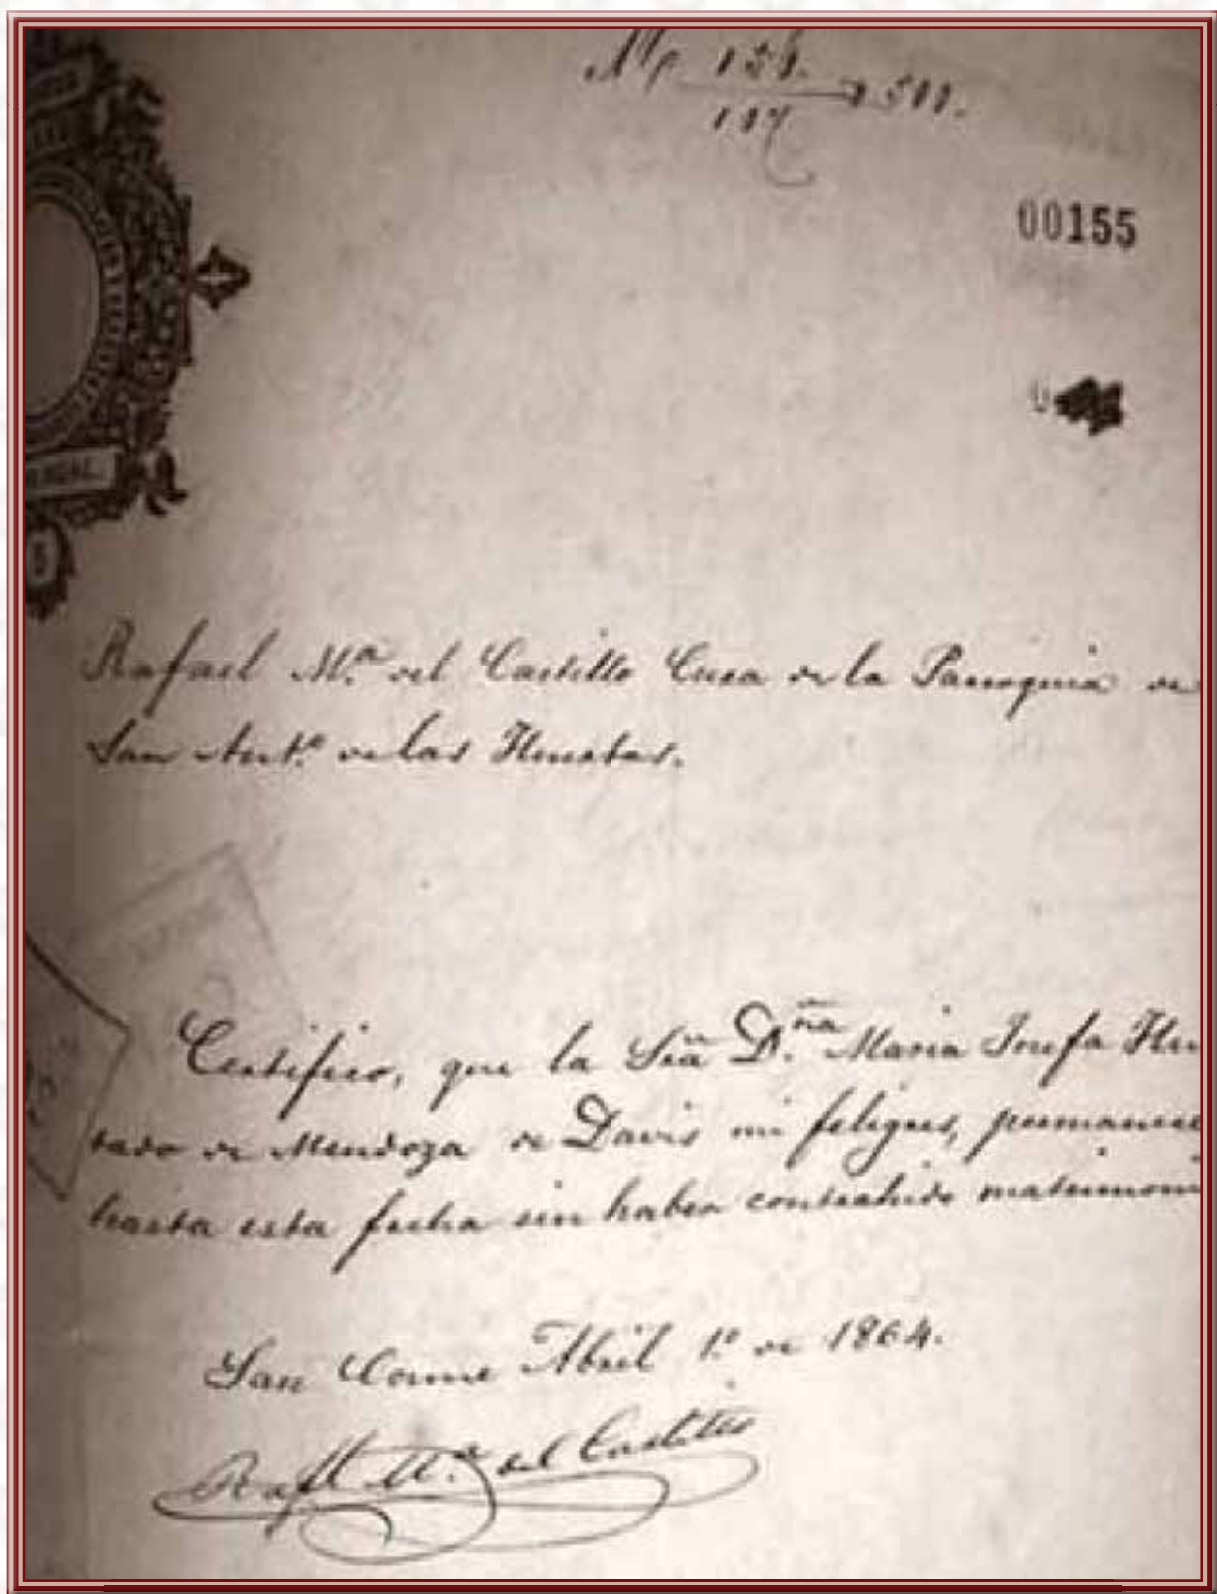 00155
Rafael M.ª del Castillo Cura de la Parroquia de
San Ant.º de las Huertas.
Certifico, que la Srã D.ña Maria Josefa Hur
tado de Mendoza de Davis mi feligres, permanece
hasta esta fecha sin haber contrahido matrimoni
San Cosme Abril 1º de 1864.
Raf.l M.ª del Castillo